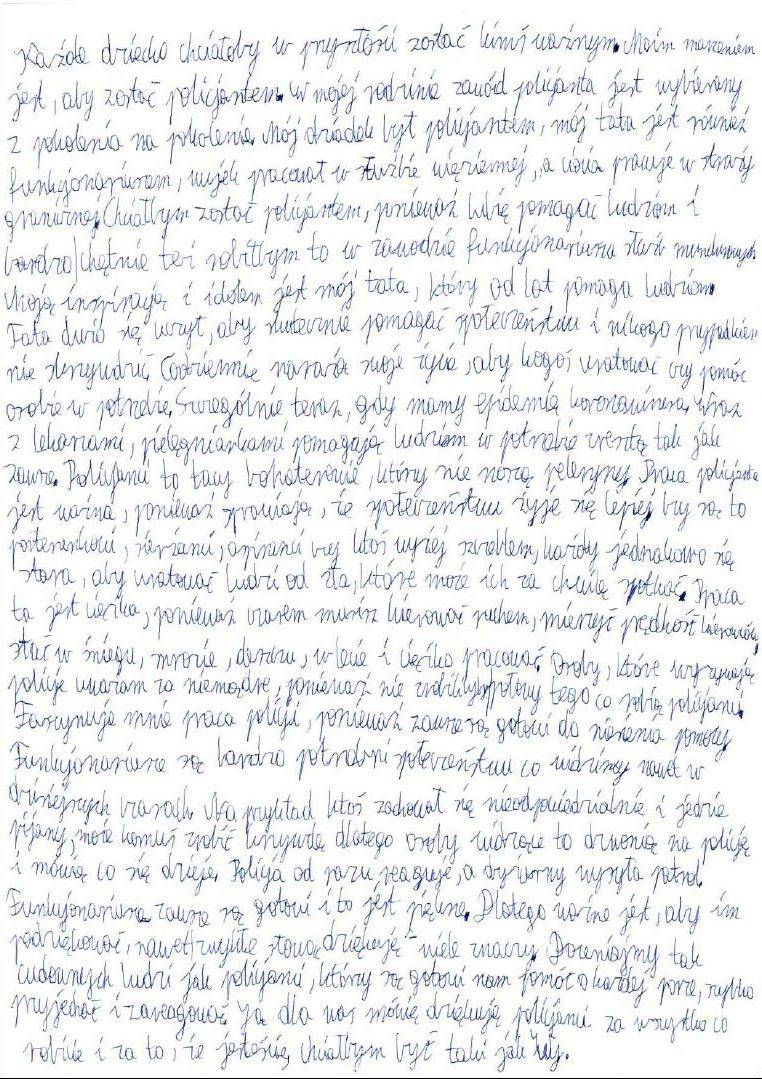 Każde dziecko chciałoby w przyszłości zostać kimś ważnym. Moim marzeniem
jest, aby zostać policjantem. W mojej rodzinie zawód policjanta jest wybierany
z pokolenia na pokolenie. Mój dziadek był policjantem, mój tata jest również
funkcjonariuszem, wujek pracował w służbie więziennej, a ciocia pracuje w straży
granicznej. Chciałbym zostać policjantem, ponieważ lubię pomagać ludziom i
bardzo chętnie też robiłbym to w zawodzie funkcjonariusza służb mundurowych
Moją inspiracją i idolem jest mój tata, który od lat pomaga ludziom.
Tata dużo się uczył, aby skutecznie pomagać społeczeństwu i nikogo przypadkiem
nie skrzywdzić. Codziennie naraża swoje życie, aby kogoś uratować czy pomóc
osobie w potrzebie. Szczególnie teraz, gdy mamy epidemię koronawirusa. Wraz
z lekarzami, pielęgniarkami pomagają ludziom w potrzebie zresztą tak jak
zawsze. Policjanci to tacy bohaterowie, którzy nie noszą peleryny. Praca policjanta
jest ważna, ponieważ sprawiają, że społeczeństwu żyje się lepiej czy są to
posterunkowi, sierżanci, aspiranci czy ktoś wyżej szczeblem, każdy jednakowo się
stara, aby uratować ludzi od zła, które może ich za chwilę spotkać. Praca
ta jest ciężka, ponieważ czasem musisz kierować ruchem, mierzyć prędkość kierowców,
stać w śniegu, mrozie, deszczu, w lecie i ciężko pracować. Osoby, które wyzywają
policję uważam za niemądre, ponieważ nie zrobiliby połowy tego co robią policjanci.
Fascynuje mnie praca policji, ponieważ zawsze są gotowi do niesienia pomocy
Funkcjonariusze są bardzo potrzebni społeczeństwu co widzimy nawet w
dzisiejszych czasach. Na przykład ktoś zachował się nieodpowiedzialnie i jedzie
pijany, może komuś zrobić krzywdę dlatego osoby widzące to dzwonią na policję
i mówią co się dzieje. Policja od razu reaguje, a dyżurny wysyła patrol.
Funkcjonariusze zawsze są gotowi i to jest piękne. Dlatego ważne jest, aby im
podziękować, nawet zwykłe słowa „dziękuję" wiele znaczy. Doceniajmy tak
cudownych ludzi jak policjanci, którzy są gotowi nam pomóc o każdej porze, szybko
przyjechać i zareagować. Ja dla was mówię dziękuję policjanci za wszystko co
robicie i za to, że jesteście, chciałbym być taki jak Wy.